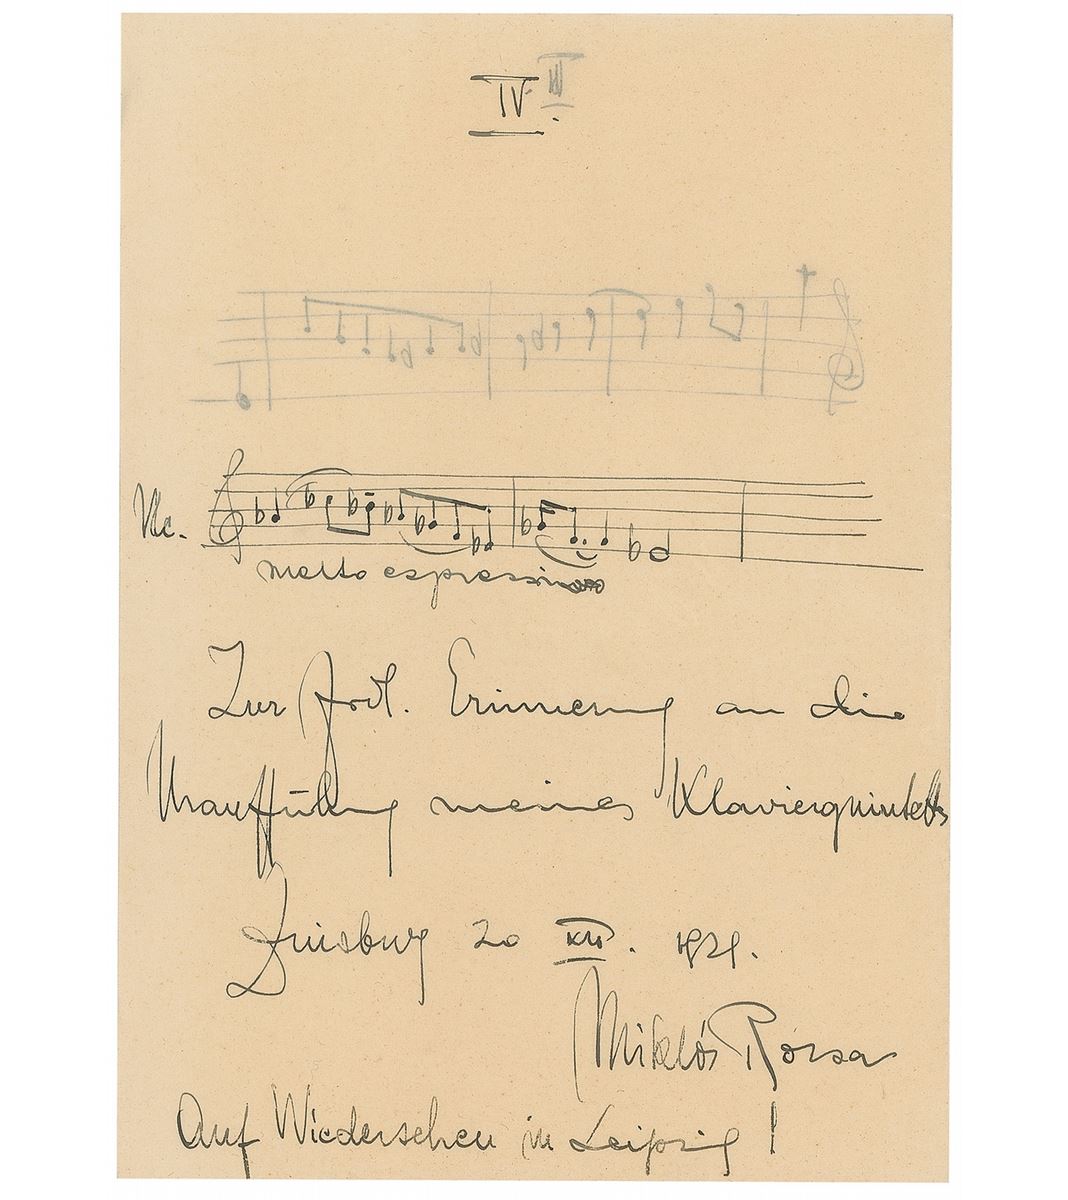 IV. III.
Vlc.
molto espressivo
Zur frdl. Erinnerung an die
Uraufführung meines Klavierquintetts
Duisburg 20 XII. 1929.
Miklós Rózsa
Auf Wiedersehen in Leipzig!